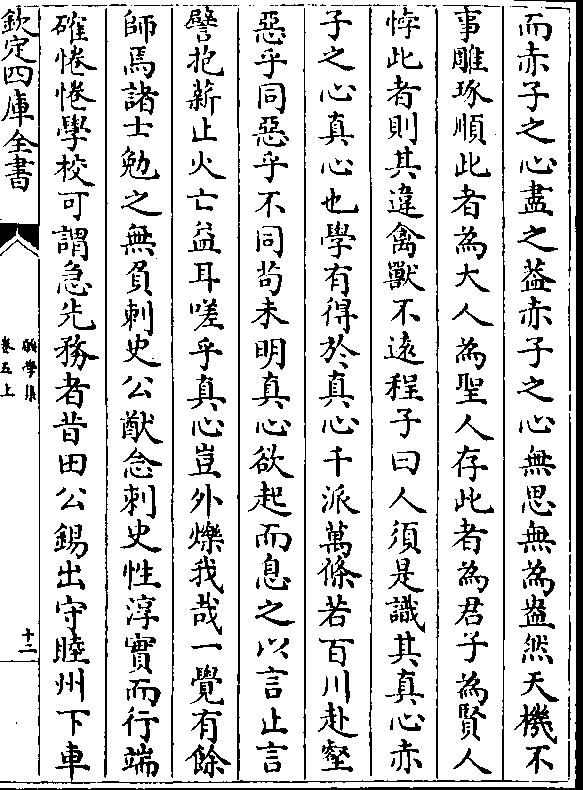 而赤子之心盡之葢赤子之心無思無為盎然天機不
事雕琢順此者為大人為聖人存此者為君子為賢人
悖此者則其違禽獸不遠程子曰人須是識其真心赤
子之心真心也學有得於真心千派萬條若百川赴壑
惡乎同惡乎不同茍未明真心欲起而息之以言止言
譬抱薪止火亡益耳嗟乎真心豈外爍我哉一覺有餘
師焉諸士勉之無負刺史公猷念刺史性淳實而行端
確惓惓學校可謂急先務者昔田公錫出守睦州下車
欽定四庫全書
願學集
卷五上
十二